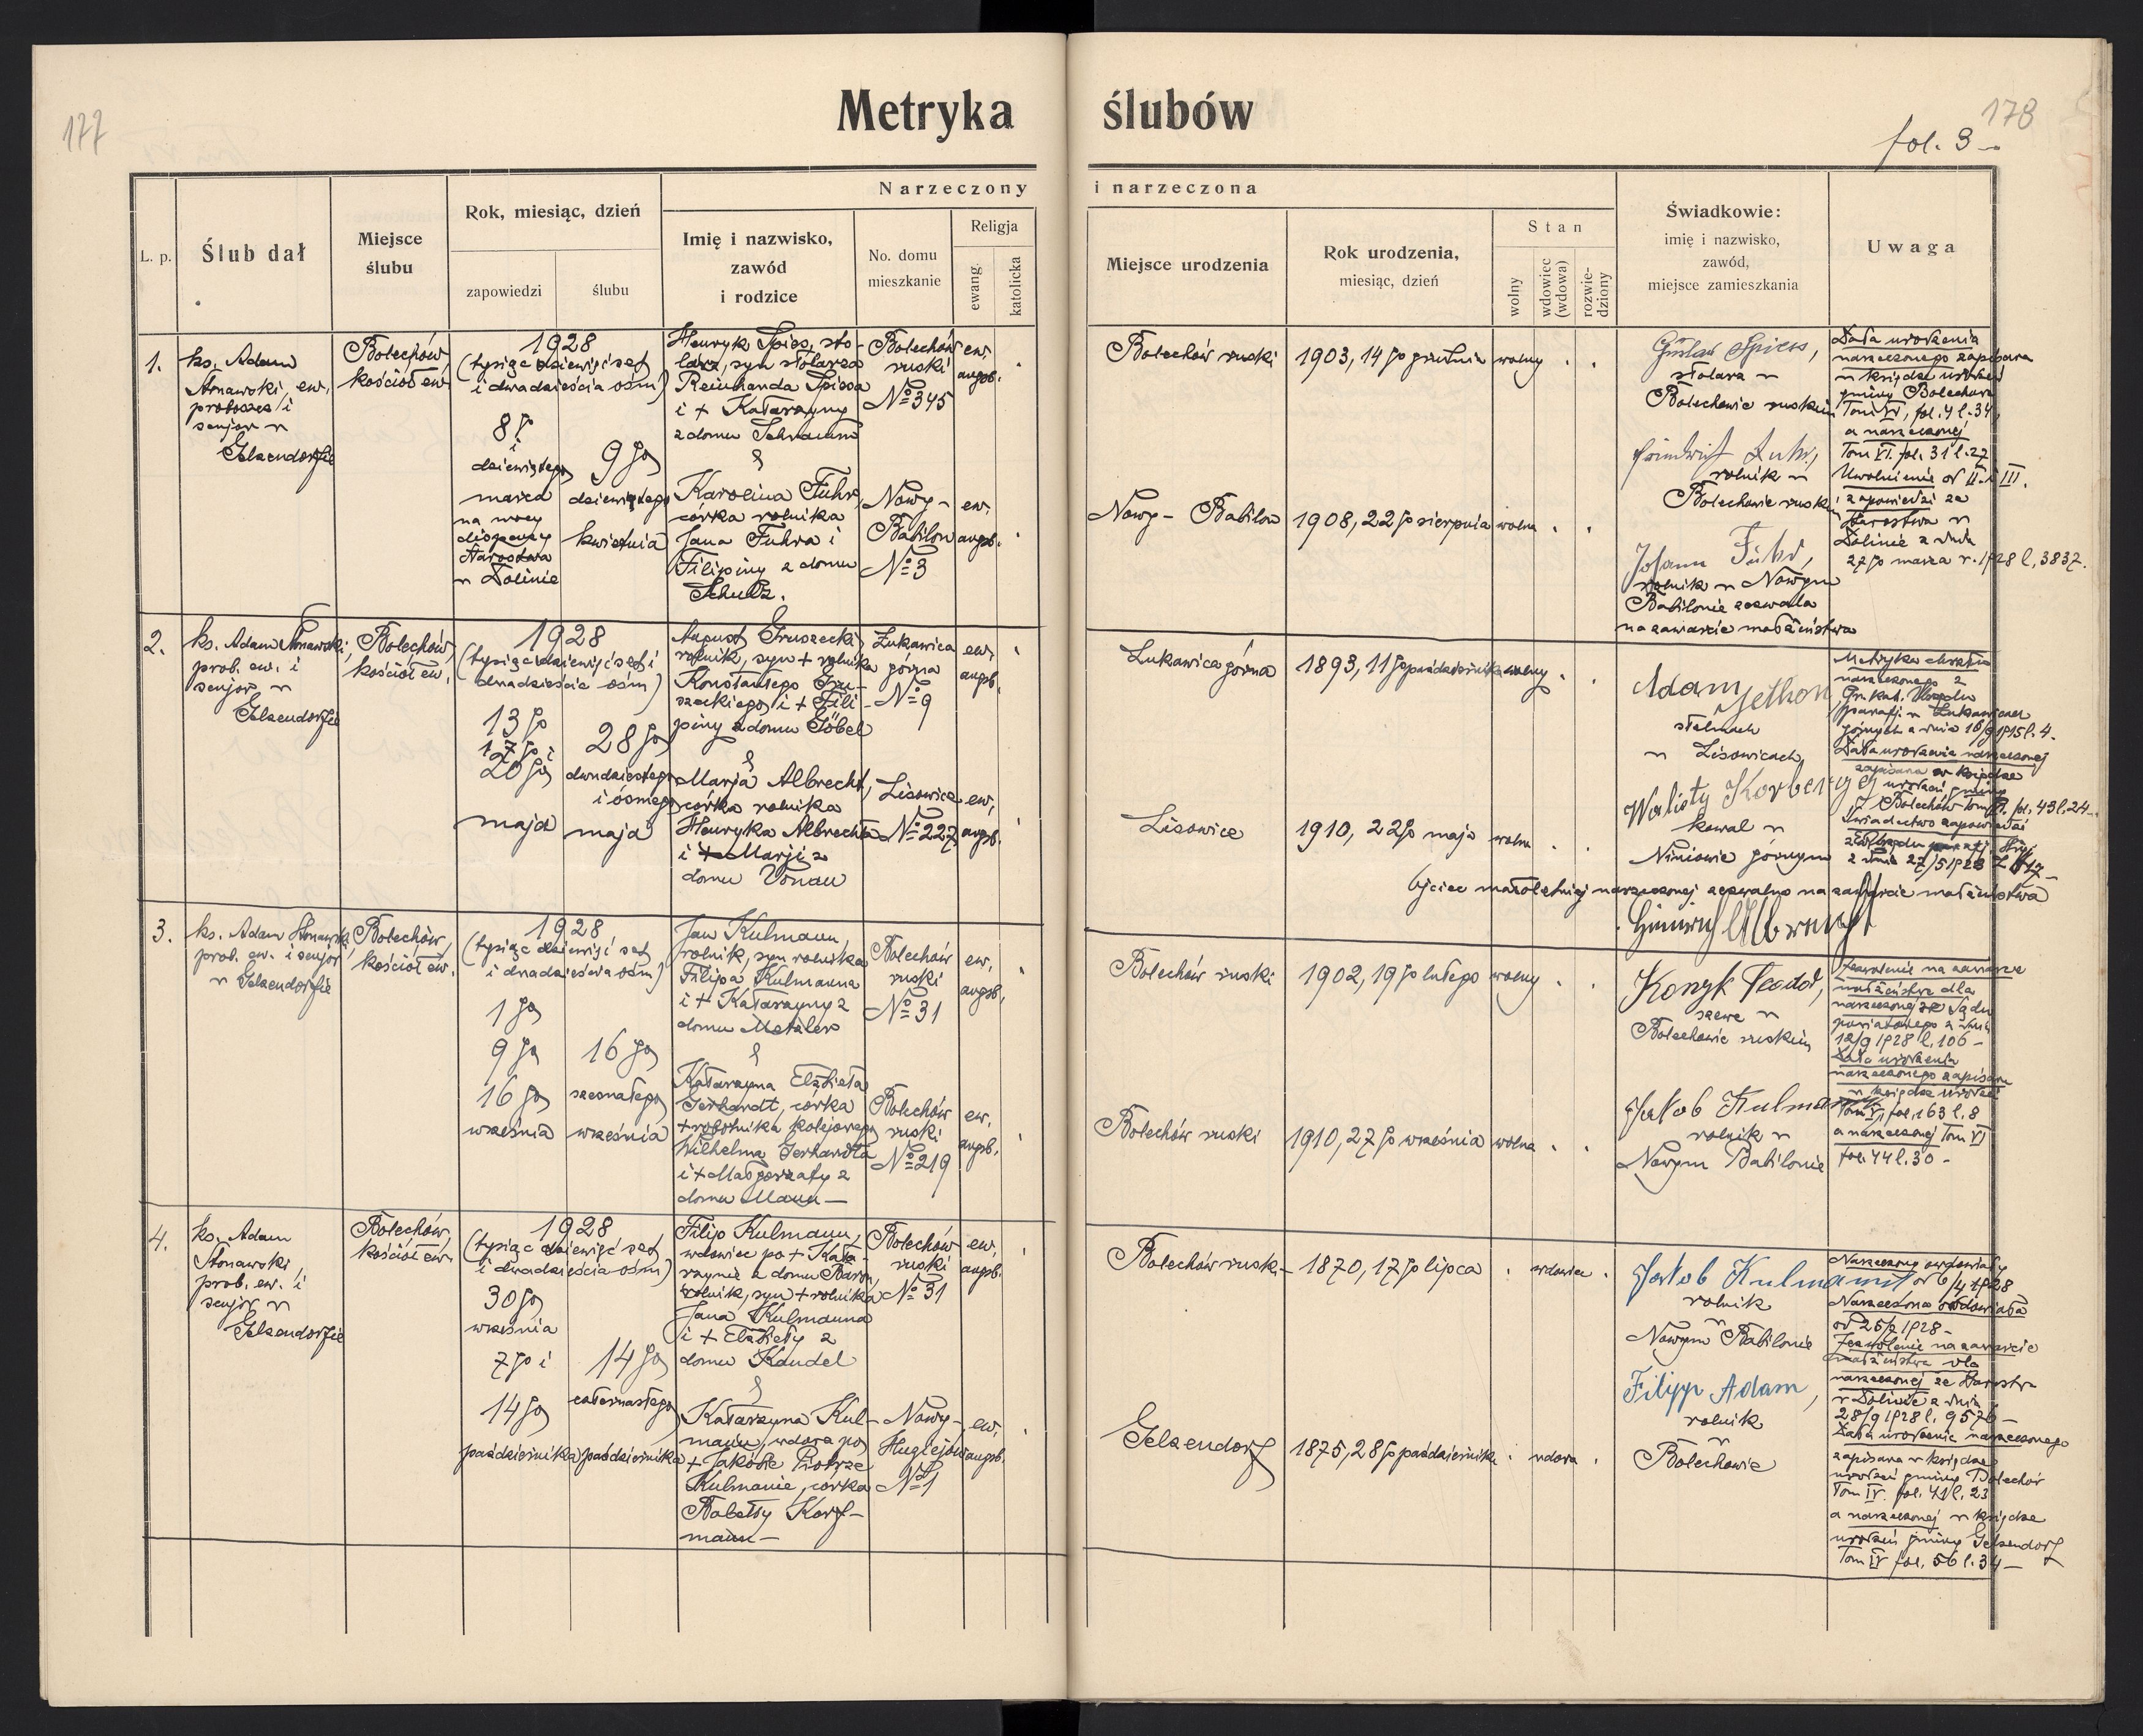 177
Metryka ślubów
178
fol. 3 -
L. p.
Ślub dał
Miejsce
ślubu
Rok, miesiąc, dzień
zapowiedzi
ślubu
Narzeczony
i narzeczona
Imię i nazwisko,
zawód
i rodzice
No. domu
mieszkanie
Religja
ewang.
katolicka
Miejsce urodzenia
Rok urodzenia,
miesiąc, dzień
Stan
wolny
wdowiec
(wdowa)
rozwie-
dziony
Świadkowie:
imię i nazwisko,
zawód,
miejsce zamieszkania
Uwaga
1.
ks. Adam
Stonawski, ew.
proboszcz i
senjor w
Gelsendorfie
Bolechów
kościół ew.
1928
(tysiąc dziewięćset
i dwadzieścia ośm)
8go
dziewiątego
marca
na mocy
dispensy
Starostwa
w Dolinie
9 go
dziewiątego
kwietnia
Henryk Spies, sto-
larz, syn stolarza
Reinharda Spiesa
i + Katarzyny
z domu Schramm
&
Karolina Fuhr,
córka rolnika
Jana Fuhra i
Filipiny z domu
Schulz.
Bolechów
ruski
No 345
ew.
augsb.
Nowy-
Babilon
No 3
ew.
augsb.
Bolechów ruski
1903, 14 go grudnia
wolny
Nowy- Babilon
1908, 22 go sierpnia
wolna
Gustav Spiess,
stolarz w
Bolechowie ruskim
Friedrich Fuhr,
rolnik w
Bolechowie ruskim
Johann Fuhr,
rolnik w Nowym
Babilonie zezwala
na zawarcie małżeństwa
Data urodzenia
narzeczonego zapisana
w księdze urodzeń
gminy Bolechów
Tom IV, fol. 4 l. 34,
a narzeczonej
Tom VI. fol. 31 l. 27
Uwolnienie od II. i III.
zapowiedzi ze
Starostwa w
Dolinie z dnia
27 go marca r. 1928 l. 3837.
2.
ks. Adam Stonawski,
prob. ew. i
senjor w
Gelsendorfie
Bolechów,
kościół ew.
1928
(tysiąc dziewięćset i
dwadzieścia ośm)
13 go
17 go i
20 go
maja
28 go
dwudziestego
i ósmego
maja
August Gruszecki
rolnik, syn + rolnika
Konstantego Gru-
szeckiego i + Fili-
piny z domu Göbel
&
Marja Albrecht,
córka rolnika
Henryka Albrechta
i + Marji z
domu Vonau
Łukawica
górna
No 9
ew.
augsb.
Lisowice
No 227
ew.
augsb.
Łukawica górna
1893, 11 go października
wolny
Lisowice
1910, 22 go maja
wolna
Adam Jethon
stelmach
w Lisowicach
Walisty Korberg
kowal w
Niniowie górnym
Metryka chrztu
narzeczonego z
Gr. kat. Urzędu
parafj. w Łukawicach
górnych z dnia 16/9 1915 l. 4.
Data urodzenia narzeczonej
zapisana w księdze
urodzeń gminy
Bolechów Tom VI. fol. 43 l. 24.
Świadectwo zapowiedzi
z dnia 27/5 1928
Ojciec małoletniej narzeczonej zezwala na zawarcie małżeństwa
Heinrich Albrecht
3.
ks. Adam Stonawski,
prob. ew. i senjor
w Gelsendorfie
Bolechów,
kościół ew.
1928
(tysiąc dziewięćset
i dwadzieścia ośm)
1 go
9 go
16 go
września
16 go
szesnastego
września
Jan Kulmann,
rolnik, syn rolnika
Filipa Kulmanna
i + Katarzyny z
domu Metzler
&
Katarzyna Elżbieta
Gerhardt, córka
+ robotnika kolejowego
Wilhelma Gerhardta
i + Małgorzaty z
domu Mann —
Bolechów
ruski
No 31
ew.
augsb.
Bolechów
ruski
No 219
ew.
augsb.
Bolechów ruski
1902, 19 go lutego
wolny
Bolechów ruski
1910, 27 go września
wolna
Konyk Teodor,
szewc w
Bolechowie ruskim
Jakob Kulmann
rolnik w
Nowym Babilonie
Zezwolenie na zawarcie
małżeństwa dla
narzeczonej ze Sądu
powiatowego z dnia
12/9 1928 l. 106 -
Data urodzenia
narzeczonego zapisana
w księdze urodzeń
Tom V, fol. 163 l. 8
a narzeczonej Tom VI
fol. 44 l. 30 -
4.
ks. Adam
Stonawski,
prob. ew. i
senjor w
Gelsendorfie
Bolechów,
kościół ew.
1928
(tysiąc dziewięćset
i dwadzieścia ośm)
30 go
września
7 go i
14 go
października
14 go
czternastego
października
Filip Kulmann,
wdowiec po + Kata-
rzynie z domu Baron,
rolnik, syn + rolnika
Jana Kulmanna
i + Elżbiety z
domu Kandel
&
Katarzyna Kul-
mann, wdowa po
+ Jakóbie Piotrze
Kulmanie, córka
Babetty Korf-
mann —
Bolechów
ruski
No 31
ew.
augsb.
Nowy-
Hugiejów
No 1
ew.
augsb.
Bolechów ruski
1870, 17 go lipca
wdowiec
Gelsendorf
1875, 28 go października
wdowa
Jakob Kulmann
rolnik
w
Nowym Babilonie
Filipp Adam,
rolnik
w
Bolechowie
Narzeczony owdowiały
od 6/4 1928
Narzeczona owdowiała
od 25/2 1928 -
Zezwolenie na zawarcie
małżeństwa dla
narzeczonej ze Starostwa
w Dolinie z dnia
28/9 1928 l. 9576 -
Data urodzenia narzeczonego
zapisana w księdze
urodzeń gminy Bolechów
Tom IV. fol. 41 l. 23
a narzeczonej w księdze
urodzeń gminy Gelsendorf
Tom IV fol. 56 l. 34 -